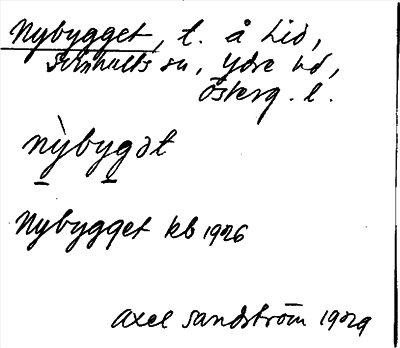 Nybygget, t. å Lid,
Svinhults sn, Ydre hd,
Österg. l.
nỳbygət
Nybygget kb 1926
Axel Sandström 1929